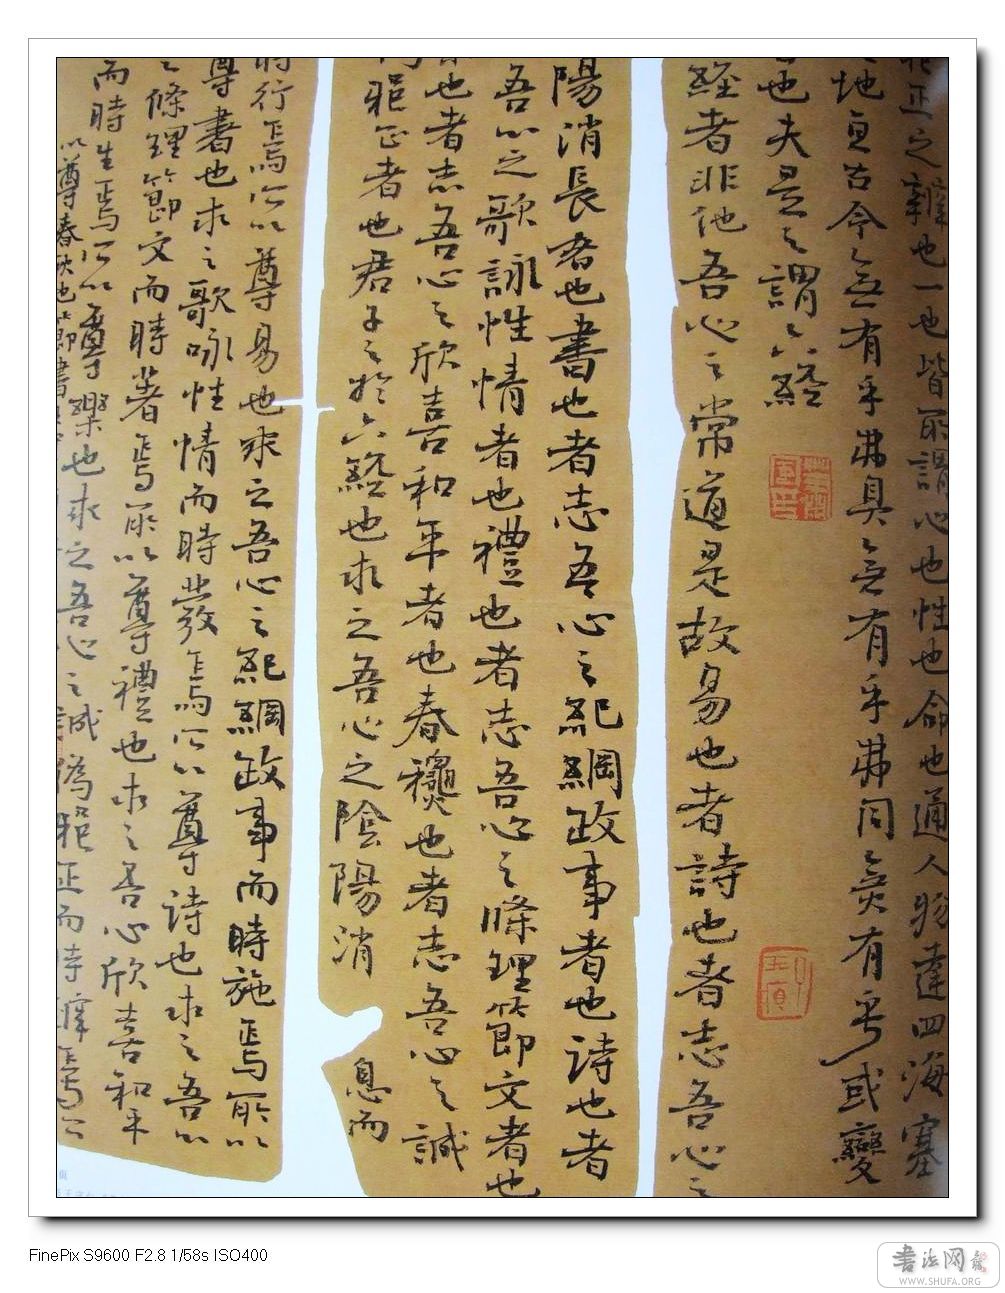 邪正之辯也一也皆所謂心也性也命也通人物達四海塞
天地亘古今無有乎弗具無有乎弗同無有乎或變
也夫是之謂六經
經者非他吾心之常道是故易也者詩也者志吾心之
陽消長者也書也者志吾心之紀綱政事者也詩也者
吾心之歌詠性情者也禮也者志吾心之條理節文者也
也者志吾心之欣喜和平者也春穐也者志吾心之誠
邪正者也君子之於六經也求之吾心之陰陽消息而
時行焉所以尊易也求之吾心之紀綱政事而時施焉所以
尊書也求之歌咏性情而時發焉所以尊詩也求之吾心
之條理節文而時著焉所以尊禮也求之吾心欣喜和平
而時生焉所以尊樂也求之吾心之誠偽邪正而時辯焉所
以尊春秋也節書
FinePix S9600 F2.8 1/58s ISO400
書法网
WWW.SHUFA.ORG